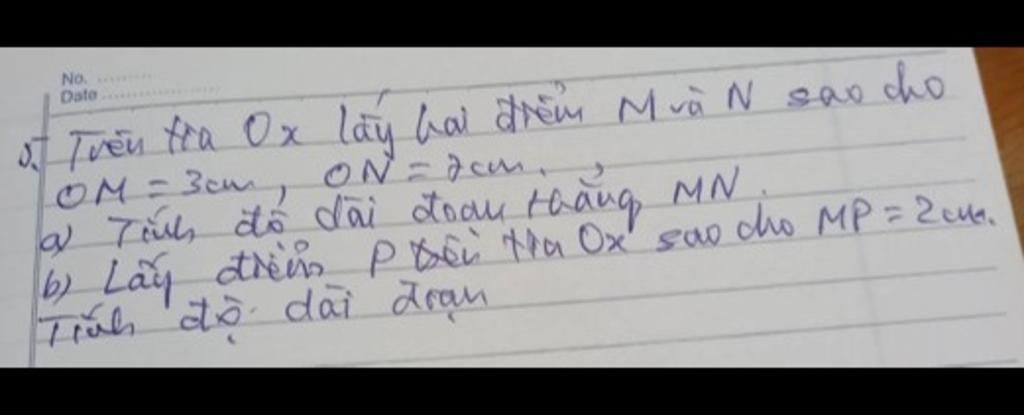 No. ..........
Date ....................
5. Trên tia Ox lấy hai điểm M và N sao cho
OM = 3cm, ON = 7cm.
a) Tính độ dài đoạn thẳng MN.
b) Lấy điểm P trên tia Ox sao cho MP = 2cm.
Tính độ dài đoạn